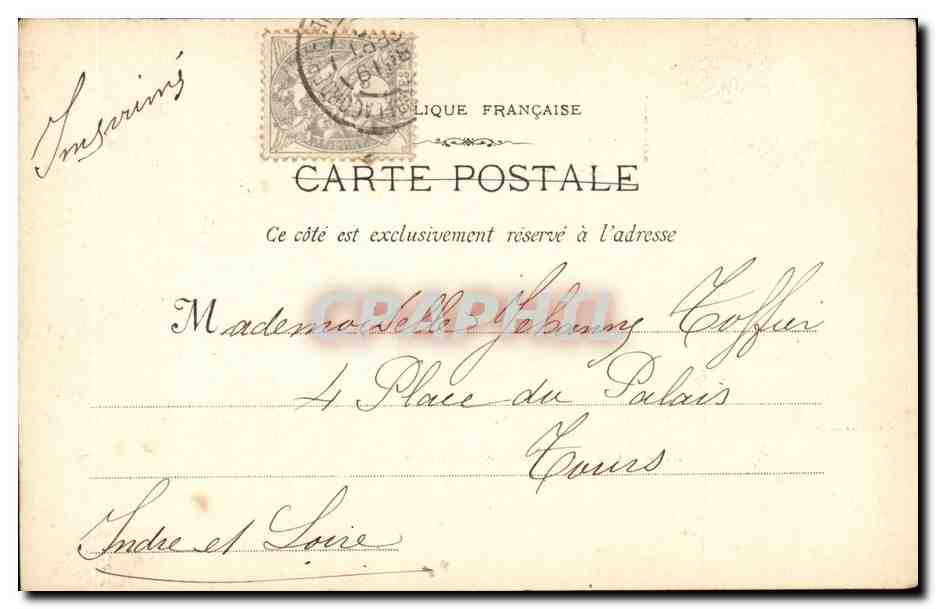 Imprimé
LIQUE FRANÇAISE
CARTE POSTALE
Ce côté est exclusivement réservé à l'adresse
Mademoiselle Jehanny Toffier
4 Place du Palais
Tours
Indre et Loire
CPAPHIL